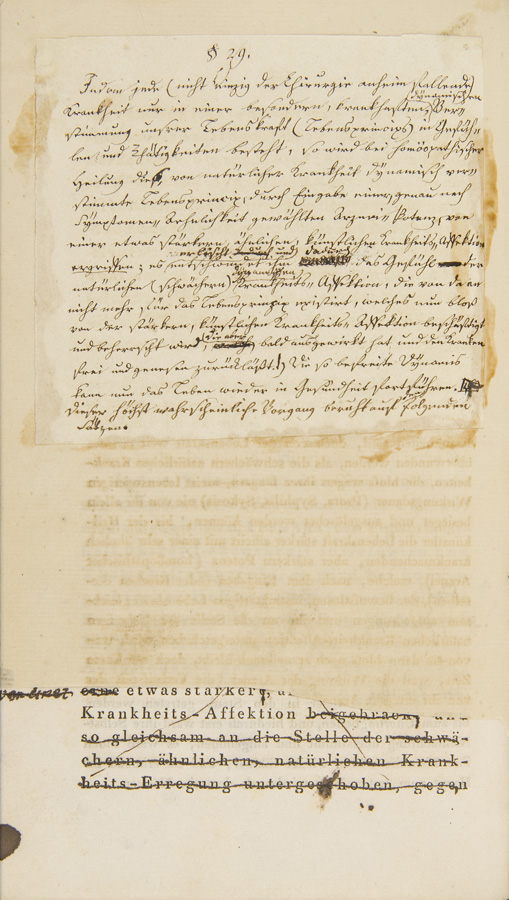 § 29.
Indem jede (nicht einzig der Chirurgie anheim fallende)
Krankheit nur in einer besondern, krankhaften, dynamischen Ver-
stimmung unsrer Lebenskraft (Lebensprincips) in Gefüh-
len und Thätigkeiten besteht, so wird bei homöopathischer
Heilung dieß, von natürlicher Krankheit dynamisch ver-
stimmte Lebensprincip, durch Eingabe einer, genau nach
Symptomen-Aehnlichkeit gewählten Arznei-Potenz, von
einer etwas stärkern, ähnlichen, künstlichen Krankheits-Affektion
ergriffen; es erlischt und entschwindet ihm dadurch das Gefühl der
natürlichen (schwächern) dynamischen Krankheits-Affektion, die von da an
nicht mehr für das Lebensprinzip existirt, welches nun bloß
von der stärkern, künstlichen Krankheits-Affektion beschäftigt
und beherrscht wird, die aber bald ausgewirkt hat und den Kranken
frei und genesen zurückläßt.1) Die so befreite Dynamis
kann nun das Leben wieder in Gesundheit fortführen.
Dieser höchst wahrscheinliche Vorgang beruht auf folgenden
Sätzen.
eine etwas stärkere,
Krankheits-Affektion beigebracht,
so gleichsam an die Stelle der schwä-
chern, ähnlichen, natürlichen Krank-
heits-Erregung untergeschoben, gegen